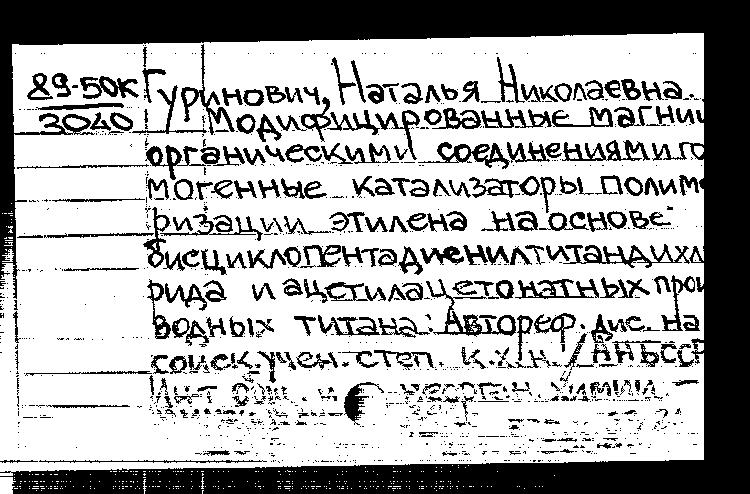 89-50К Гуринович, Наталья Николаевна.
3040 Модифицированные магний
органическими соединениями го
могенные катализаторы полиме
ризации этилена на основе
бисциклопентадиенилтитандихло
рида и ацетилацетонатных произ
водных титана: Автореф. дис. на
соиск. учен. степ. к.х.н. / АН БССР
Ин-т общ. и неорган. химии. —